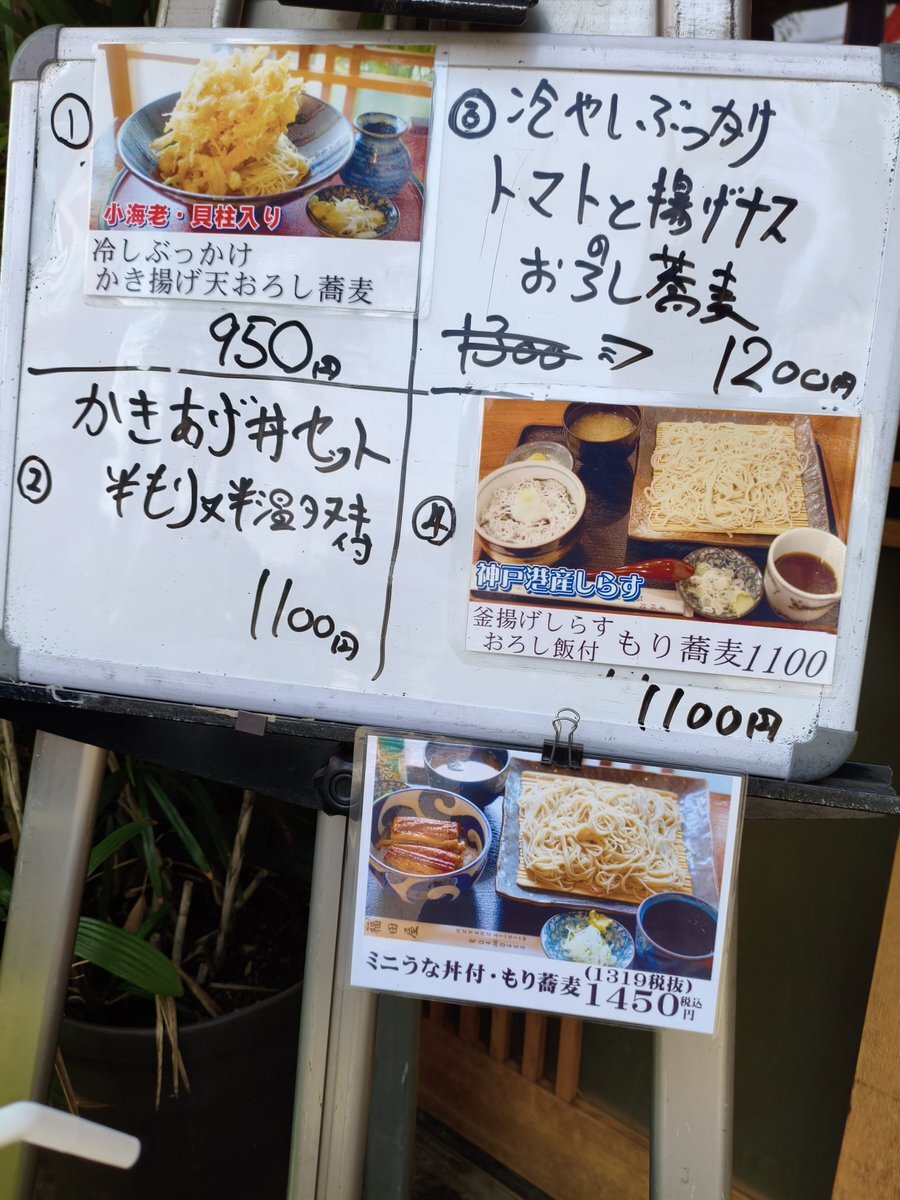 ①
小海老・貝柱入り
冷しぶっかけ
かき揚げ天おろし蕎麦
950円
かきあげ丼セット
②
半もり又半温タヌキ
付
1100円
③ 冷やしぶっかけ
トマトと揚げナス
の
おろし蕎麦
1300 ⇒ 1200円
④
神戸港産しらす
釜揚げしらす
おろし飯付 もり蕎麦1100
1100円
福田屋
ミニうな丼付・もり蕎麦
(1319税抜)
1450税込円